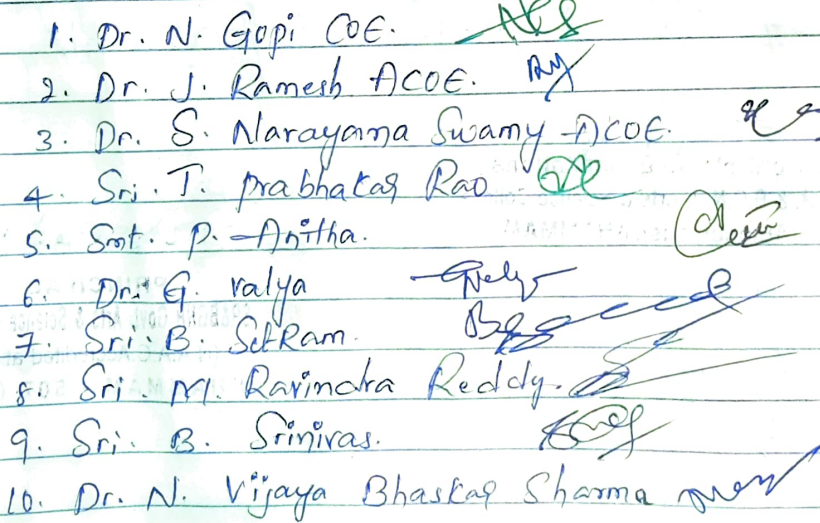 1. Dr. N. Gopi COE.
2. Dr. J. Ramesh ACOE.
3. Dr. S. Narayana Swamy ACOE.
4. Sri. T. prabhakar Rao
5. Smt. P. Anitha.
6. Dr. G. valya
7. Sri. B. Ram.
8. Sri. M. Ravindra Reddy.
9. Sri. B. Srinivas.
10. Dr. N. Vijaya Bhaskar Sharma